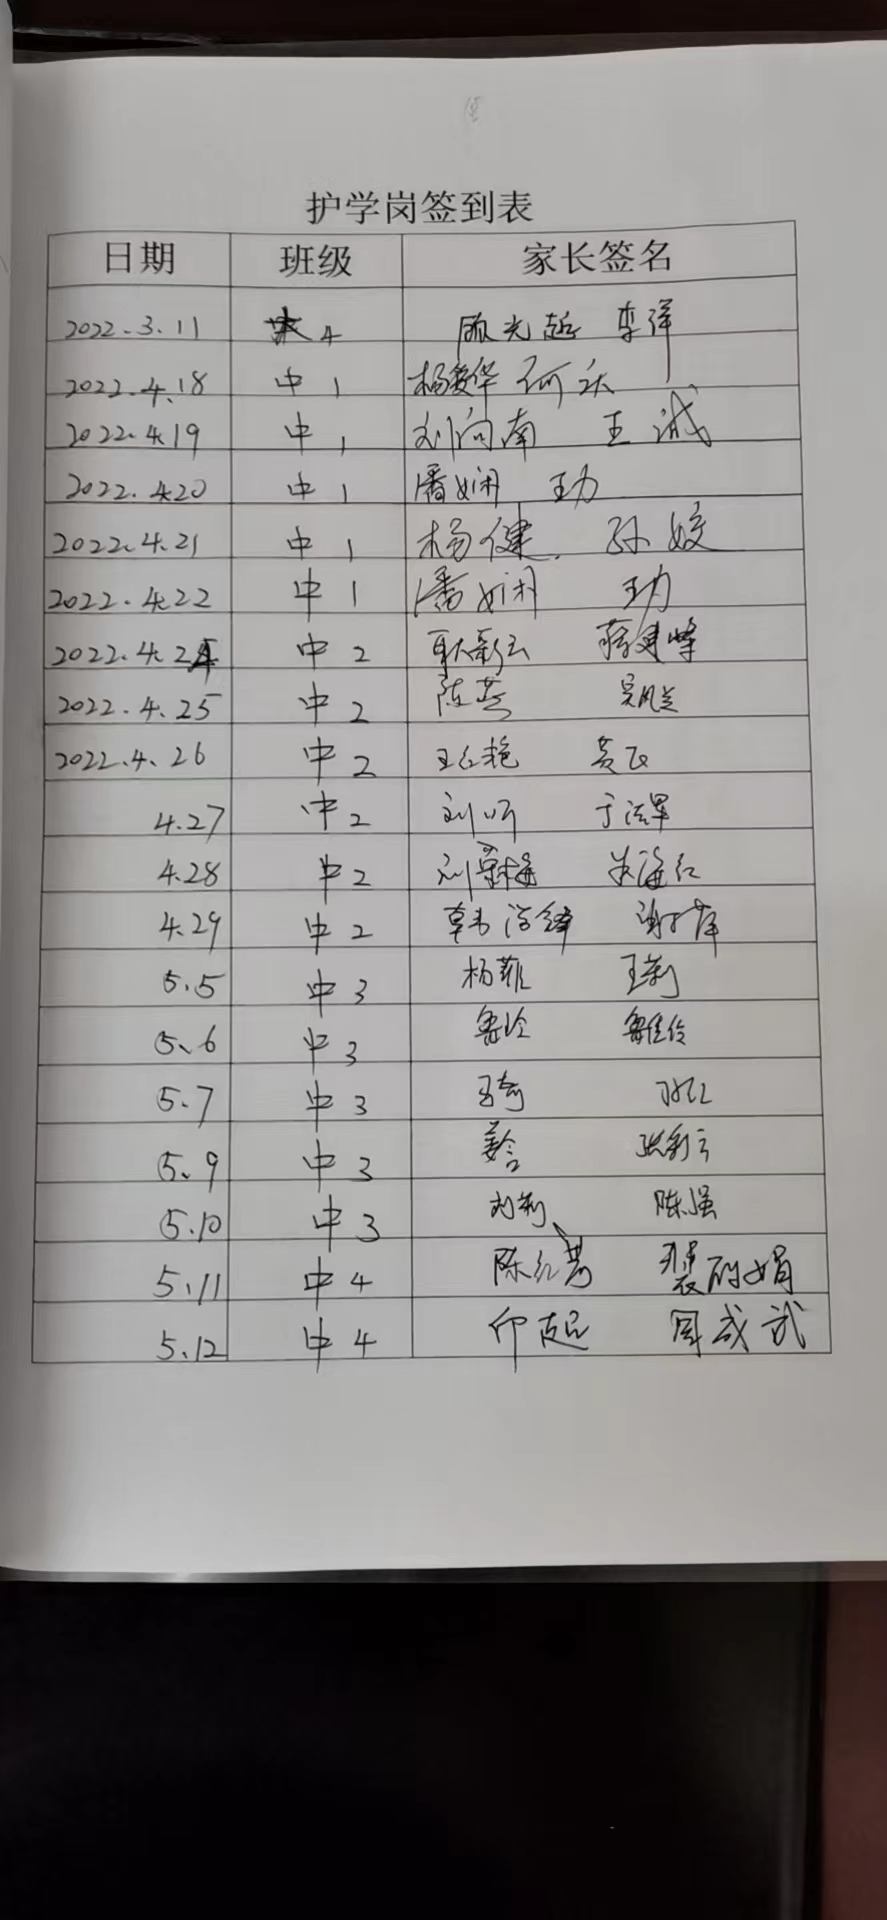 护学岗签到表
日期 班级 家长签名
2022.3.11 大4 顾光超 李洋
2022.4.18 中1
2022.4.19 中1 刘向南 王诚
2022.4.20 中1 潘娴 王力
2022.4.21 中1 杨健 孙姣
2022.4.22 中1 潘娴 王力
2022.4.24 中2 耿彩云 蒋建峰
2022.4.25 中2 陈燕
2022.4.26 中2 王红艳 黄飞
4.27 中2 刘昕
4.28 中2 朱海红
4.29 中2 韩学锋
5.5 中3 杨菲 王莉
5.6 中3 鲁玲 鲁佳伶
5.7 中3
5.9 中3 姜合 张彩云
5.10 中3 刘莉 陈强
5.11 中4 陈红梅 裴丽娟
5.12 中4 印超 周成武